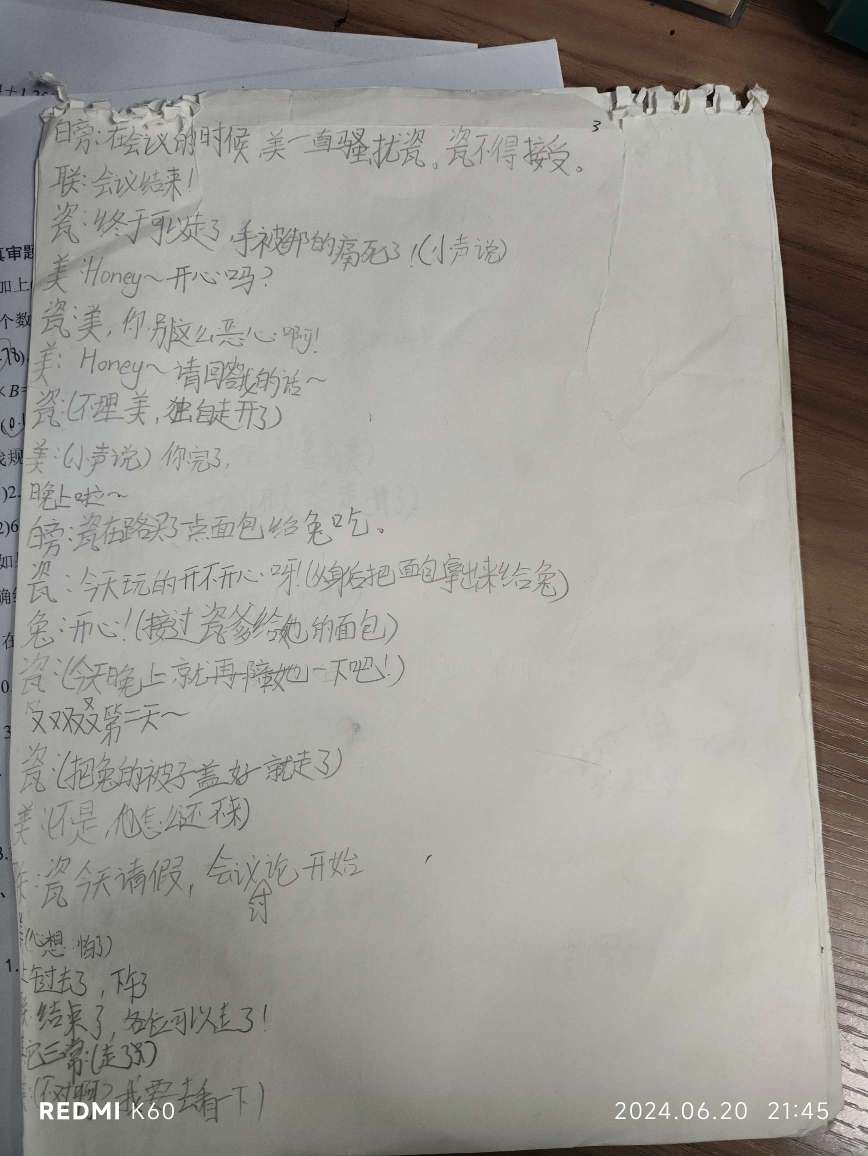 3
白旁:在会议的时候 美一直骚扰瓷。瓷不得接受。
联:会议结束!
瓷:终于可以走了,手被绑的痛死了!(小声说)
美:Honey~开心吗?
瓷:美,你别这么恶心啊!
美: Honey~请回答我的话~
瓷:(不理美,独自走开了)
美:(小声说)你完了,
晚上啦~
白旁:瓷在路买了点面包给兔吃。
瓷:今天玩的开不开心呀!(从身后把面包拿出来给兔)
兔:开心!(接过瓷爹给她的面包)
瓷:(今天晚上就再陪她一下吧!)
又双叒叕第二天~
瓷:(把兔的被子盖好就走了)
美:(不是,他怎么还不来)
:瓷今天请假,会议论开始
讨
(心想:怕了)
午过去了,下午了
:结束了,各位可以走了!
它三常:(走了)
:(不对啊?我要去看一下)
真审题
加上
个数
REDMI K60
2024.06.20 21:45